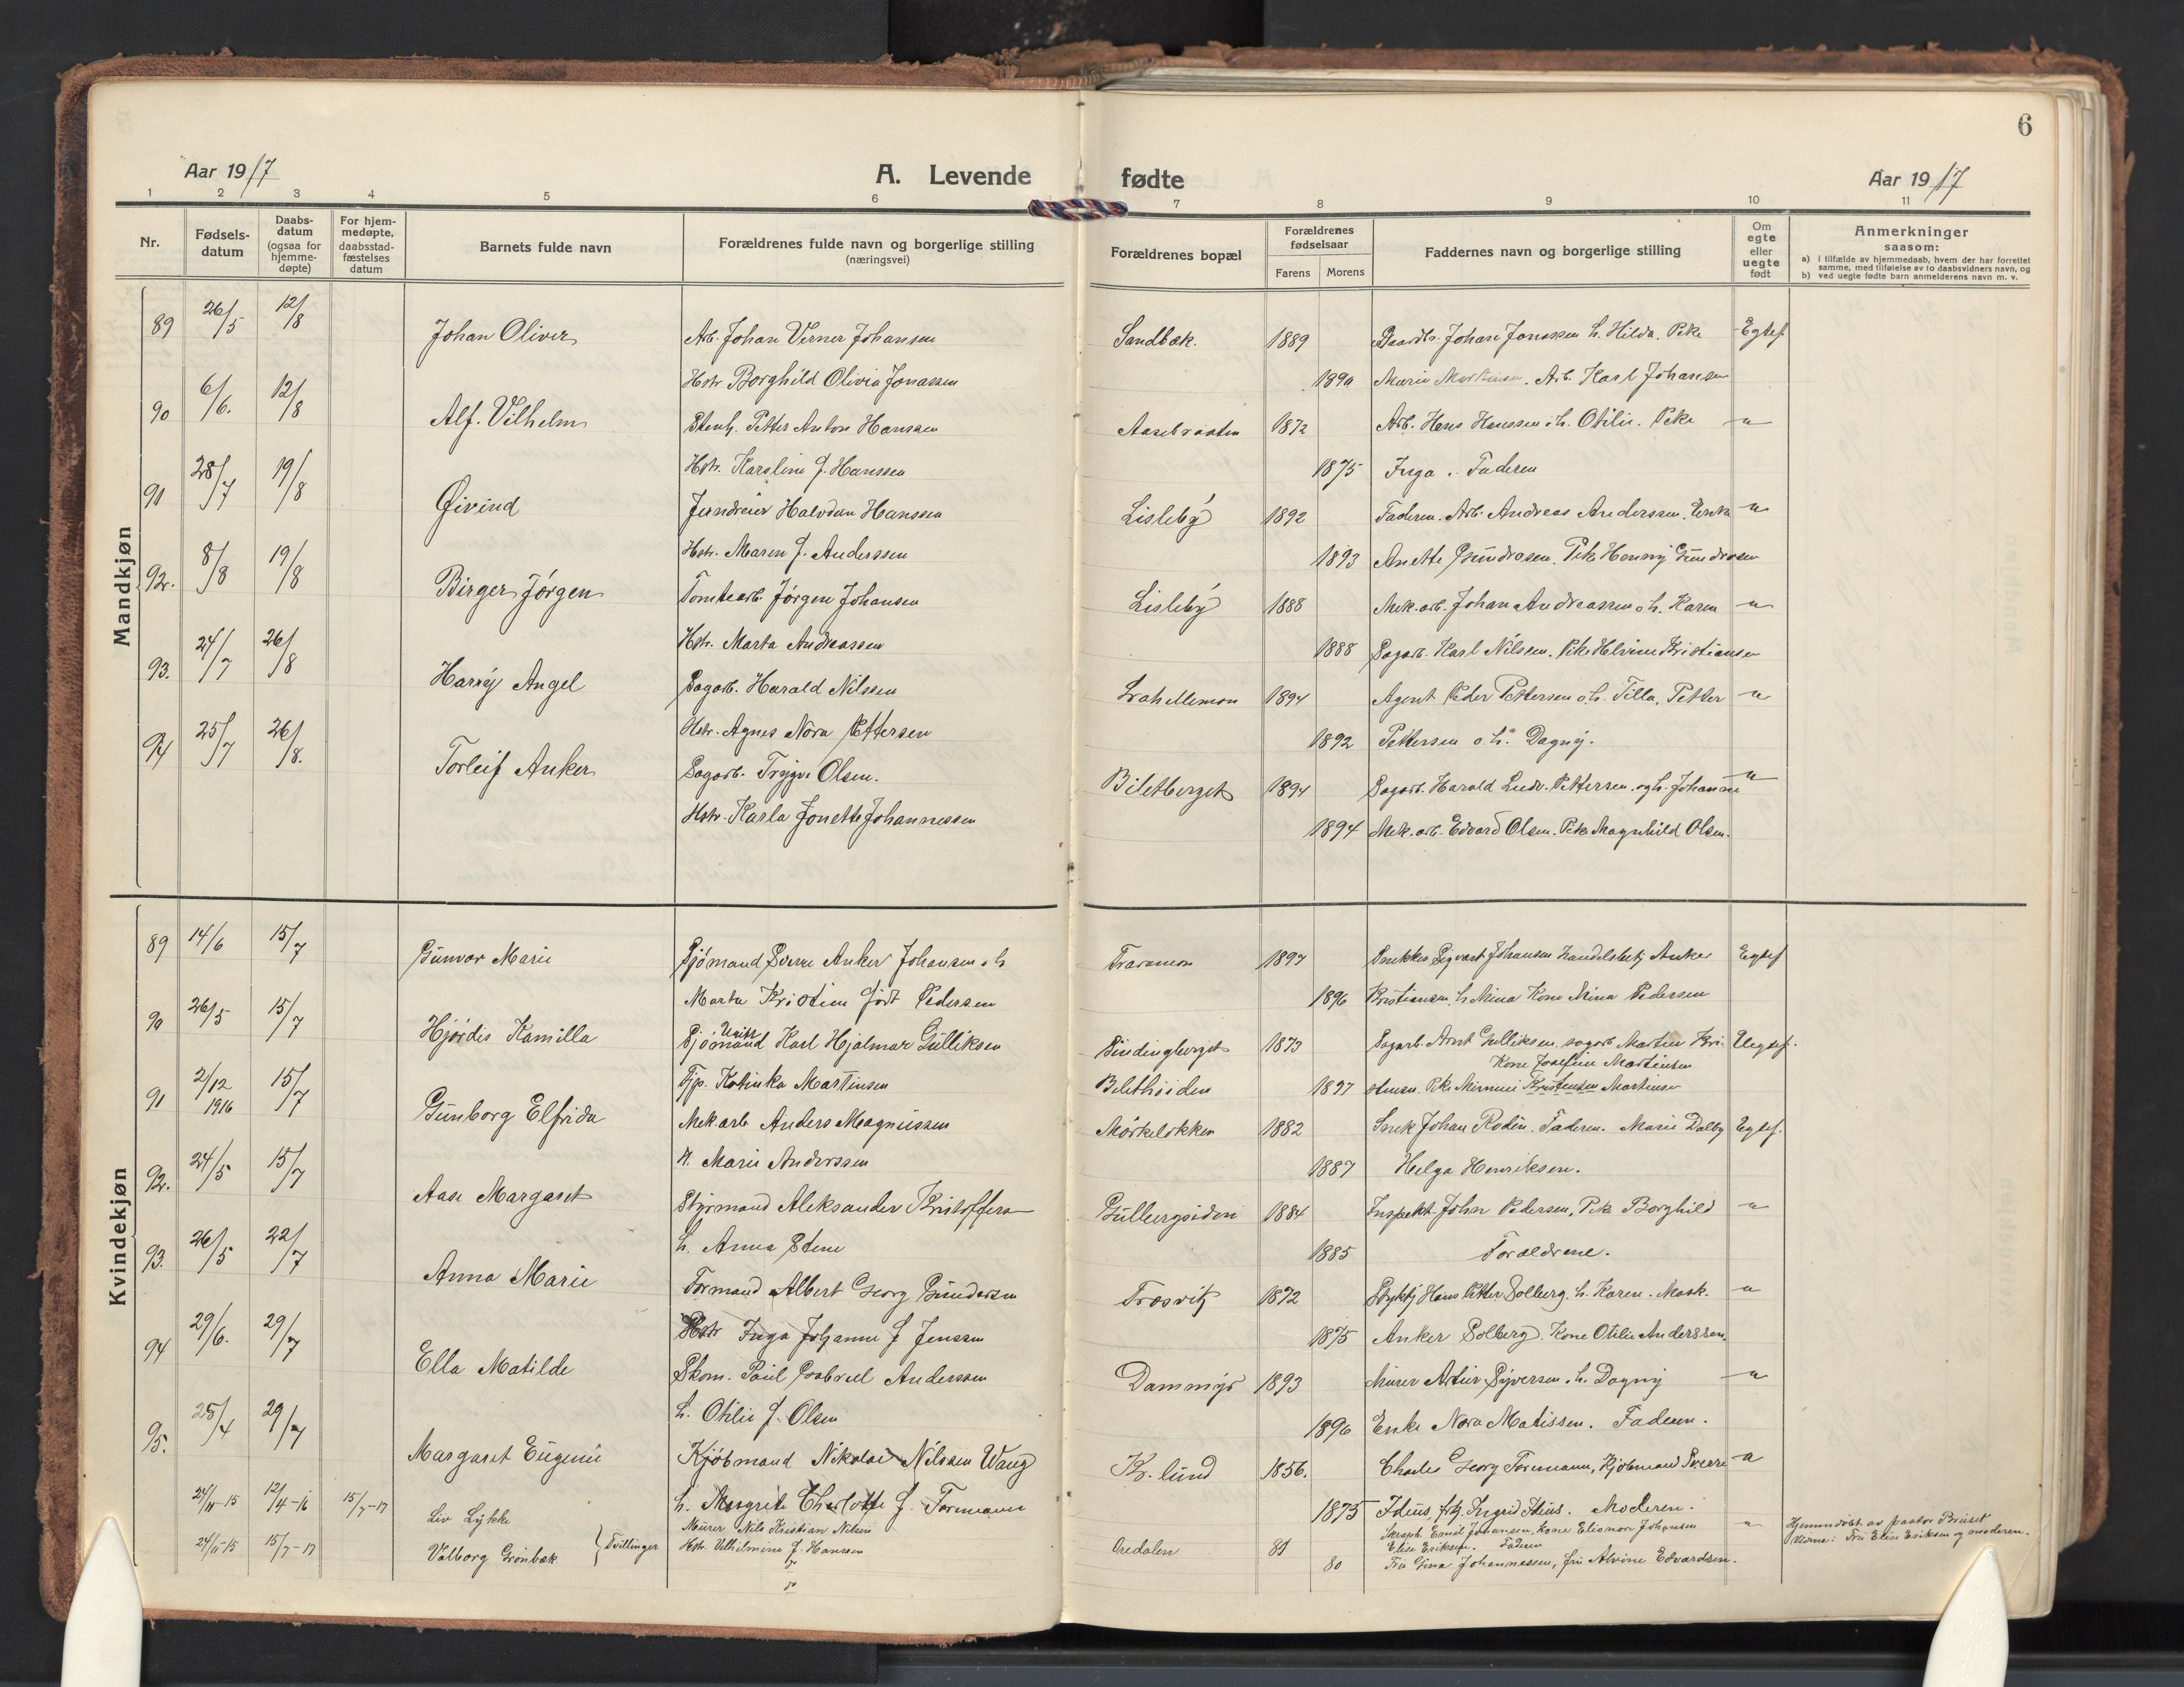 6
Aar 1917
A. Levende
fødte
Aar 1917
1 2 3 4 5 6 7 8 9 10 11
Nr.
Fødsels-
datum
Daabs-
datum
(ogsaa for
hjemme-
døpte)
For hjem-
medøpte,
daabsstad-
fæstelses
datum
Barnets fulde navn
Forældrenes fulde navn og borgerlige stilling
(næringsvei)
Forældrenes bopæl
Forældrenes
fødselsaar
Farens Morens
Faddernes navn og borgerlige stilling
Om
egte
eller
uegte
født
Anmerkninger
saasom:
a) i tilfælde av hjemmedaab, hvem der har forrettet
samme, med tilføielse av to daabsvidners navn, og
b) ved uegte fødte barn anmelderens navn m. v.
Mandkjøn
89 26/5 12/8 Johan Oliver Arb. Johan Verner Johansen Sandbæk. 1889 Gaardbr. Johan Jonassen h. Hilda. Pike Egtef.
Hstr Borghild Olivia Jonassen 1890 Marie Martinsen. Arb. Karl Johansen
90 6/6. 12/8 Alf. Vilhelm Stenh. Petter Anton Hanssen Aasebraaten 1872 Arb. Hans Hanssen o h. Otilie. Pike "
Hstr. Karoline f. Hanssen 1875 Inga . Faderen
91 28/7 19/8 Øivind Jerndreier Halvdan Hanssen Lisleby 1892 Faderen. Arb. Andreas Anderssen. Enke "
Hstr. Maren f. Anderssen 1893 Anette Gundrosen. Pike Henny Gundrosen
92. 8/8 19/8 Birger Jörgen Tomtearb. Jörgen Johansen Lisleby 1888 Mek.arb. Johan Andreassen o h. Karen "
Hstr. Marta Andreassen 1888 Sagarb. Karl Nilsen. Pike Helvine Kristiansen
93. 24/7 26/8 Harry Angel Sagarb. Harald Nilssen 1894 Agent Peder Pettersen o. h. Tilla, Petter "
Hstr. Agnes Nora Pettersen 1892 Pettersen o. h. Dagny.
94 25/7 26/8. Torleif Anker Sagarb. Trygve Olsen. Biletberget 1894 Sagarb. Harald Ludv. Pettersen. og h. Johanne "
Hstr. Karla Jonette Johannessen 1894 Mek. arb. Edvard Olsen. Pike Magnhild Olsen.
Kvindekjøn
89 14/6 15/7 Gunvor Marie Sjömand Sverre Anker Johansen o h Traramoen 1897 Snekker Sigvart Johansen handelsbetj Anker Egtef
Marta Kristine født Pedersen 1896 Kristiansen h Mina Kone Mina Pedersen
90 26/5 15/7 Hjördis Kamilla Ugift Sjömand Karl Hjalmar Gulliksen Bindingberget 1873 Sagarb. Arnt Gulliksen sagarb Martin Kri- Uegtef.
Kone Josefine Martinsen
Tjp. Katinka Martinsen Bilethöiden 1897 stensen. Pike Minnie Kristensen Martinsen
91 2/12 1916 15/7 Gunborg Elfrida Mek arb Anders Magnussen Mörkeløkken 1882 Snek Johan Rodin. Faderen. Marie Dalby Egtef.
h. Marie Anderssen 1887 Helga Henriksen.
92. 24/5 15/7 Aase Margaret Styrmand Aleksander Kristoffersen Gullbergsiden 1884 Inspekt John Pedersen, Pike Borghild "
h. Anna Stene 1885 Foraeldrene.
93. 26/5 22/7 Anna Marie Formand Albert Georg Gundersen Trosvik 1872 Hans Petter Solberg. h. Karen. Mask. "
Hstr Inga Johanne f Jenssen 1875 Anker Solberg. Kone Otilie Anderssen.
94 29/6. 29/7 Ella Matilde Skom. Paul Gabriel Anderssen Dammyr 1893 Murer Artur Syversen o. h. Dagny "
h. Otilie f. Olsen 1896 Enke Nora Matissen. Faderen.
95. 25/4 29/7 Margaret Eugenie Kjöbmand Nikolai Nilssen Wang Kr. lund 1856. Charles Georg Formann, Kjøbmand Sverre "
h. Margrete Charlotte f. Formann 1875 Ideus, frk. Ingrid Ideus. Moderen.
24/11-15 12/4-16 15/7-17 Liv Lykke Murer Nils Kristian Nilsen Emil Johansen, Kone Elionor Johansen " Hjemmedøbt av pastor Bruset
Elise Eriksen. Faderen Vidne: Fru Elise Eriksen og moderen.
24/11-15 15/7-17 Valborg Grönbæk } Tvillinger Hstr. Vilhilmine f. Hansen Oredalen 81 80 Fru Gina Johannessen, fru Alvine Edvardsen.